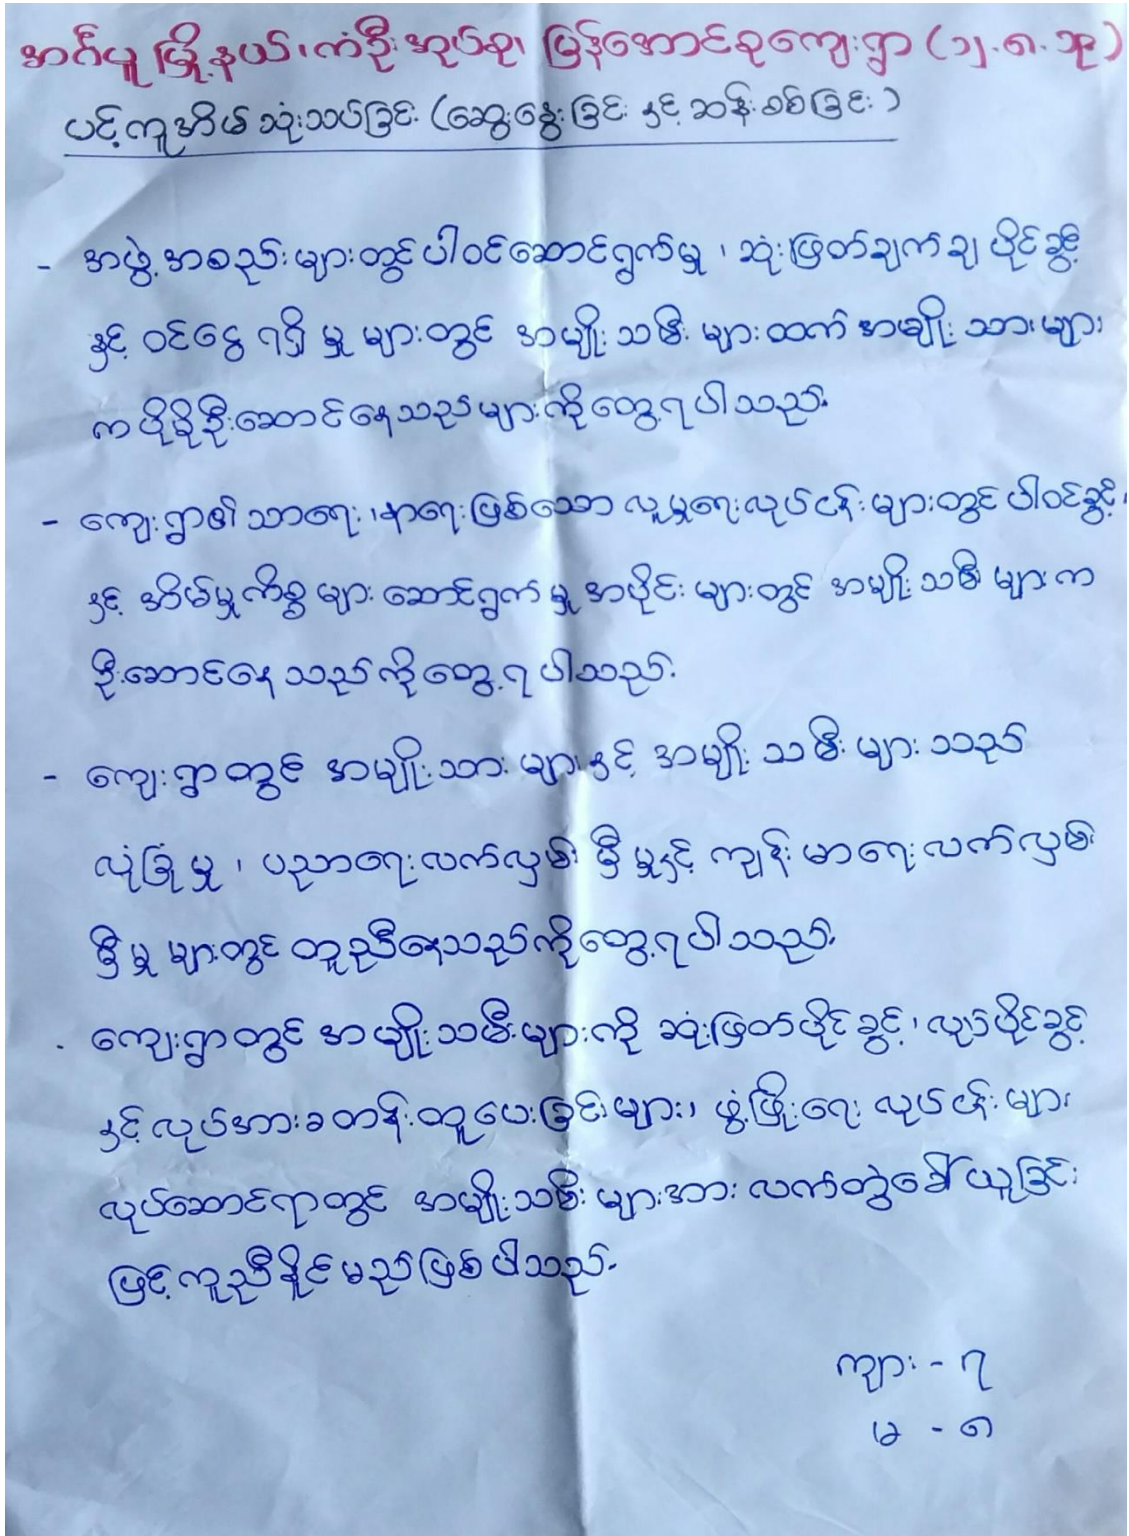 အင်္ဂပူ မြို့နယ်၊ ကံဦးအုပ်စု၊ မြန်အောင်စုကျေးရွာ (၁၂.၈.၁၉)
ပင့်ကူအိမ် သုံးသပ်ခြင်း (ဆွေးနွေးခြင်း နှင့် ဆန်းစစ်ခြင်း)
- အဖွဲ့အစည်းများတွင် ပါဝင်ဆောင်ရွက်မှု ၊ ဆုံးဖြတ်ချက်ချ ပိုင်ခွင့်
နှင့် ဝင်ငွေ ရရှိ မှု များတွင် အမျိုးသမီး များထက် အမျိုးသားများ
က ပိုမိုဦးဆောင်နေသည် များကိုတွေ့ရပါသည်။
- ကျေးရွာ၏ သာရေး ၊ နာရေးဖြစ်သော လူမှုရေးလုပ်ငန်းများတွင် ပါဝင်ခွင့် ၊
နှင့် အိမ်မှုကိစ္စများ ဆောင်ရွက်မှု အပိုင်း များတွင် အမျိုးသမီး များက
ဦးဆောင်နေ သည်ကိုတွေ့ရပါသည်။
- ကျေးရွာတွင် အမျိုးသား များနှင့် အမျိုးသမီး များ သည်
လုံခြုံမှု ၊ ပညာရေးလက်လှမ်း မှီ မှုနှင့် ကျန်းမာရေးလက်လှမ်း
မှီမှု များတွင် တူညီနေသည်ကိုတွေ့ရပါသည်။
- ကျေးရွာတွင် အမျိုးသမီးများကို ဆုံးဖြတ်ပိုင်ခွင့် ၊ လုပ်ပိုင်ခွင့်
နှင့် လုပ်အားခတန်းတူပေးခြင်းများ၊ ဖွံ့ဖြိုးရေး လုပ်ငန်းများ
လုပ်ဆောင်ရာတွင် အမျိုးသမီး များအား လက်တွဲခေါ်ယူခြင်း
ဖြင့် ကူညီနိုင်မည်ဖြစ်ပါသည်။
ကျား - ၇
မ - ၈